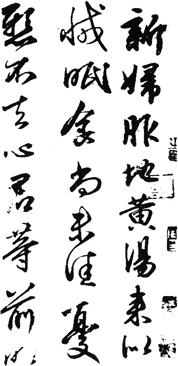 新婦服地黄湯来似
減眠食尚未佳憂
懸不去心君等前